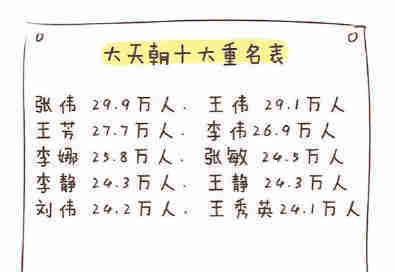 大天朝十大重名表
张伟 29.9万人. 王伟 29.1万人
王芳 27.7万人. 李伟26.9万人
李娜 25.8万人. 张敏 24.5万人
李静 24.3万人. 王静 24.3万人
刘伟 24.2万人. 王秀英24.1万人